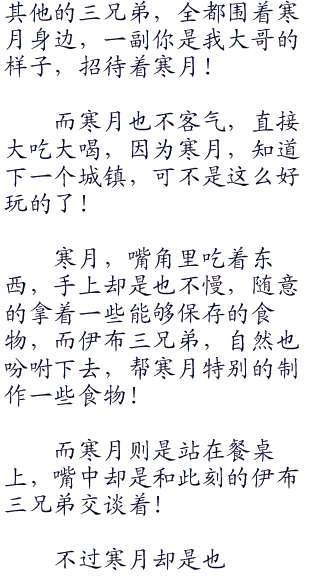 其他的三兄弟，全都围着寒
月身边，一副你是我大哥的
样子，招待着寒月！
而寒月也不客气，直接
大吃大喝，因为寒月，知道
下一个城镇，可不是这么好
玩的了！
寒月，嘴角里吃着东
西，手上却是也不慢，随意
的拿着一些能够保存的食
物，而伊布三兄弟，自然也
吩咐下去，帮寒月特别的制
作一些食物！
而寒月则是站在餐桌
上，嘴中却是和此刻的伊布
三兄弟交谈着！
不过寒月却是也